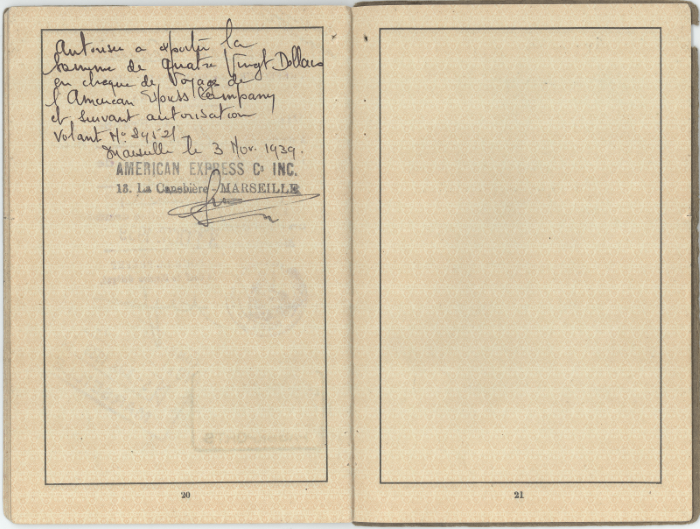 Autorisée à exporter la
somme de quatre Vingt Dollars
en cheque de Voyage de
l'American Express Company
et suivant autorisation
volant No
Marseille le 3 Nov. 1939.
AMERICAN EXPRESS Co INC.
13. La Canebière - MARSEILLE
20
21